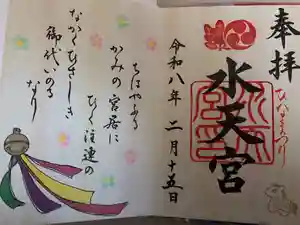 奉拝
ひなまつり
水天宮
令和八年 二月十五日
ちはやふる
かみの宮居に
ひく注連の
ながくひさしき
御代いのる
なり